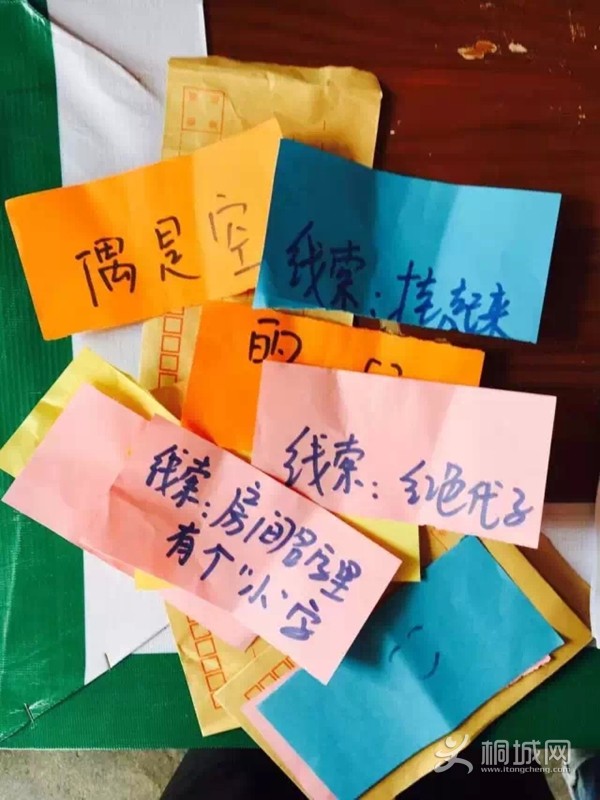 偶是空
线索：挂起来
的
线索：红色代子
线索：房间名字里
有个“小”字
桐城网
www.itongcheng.com